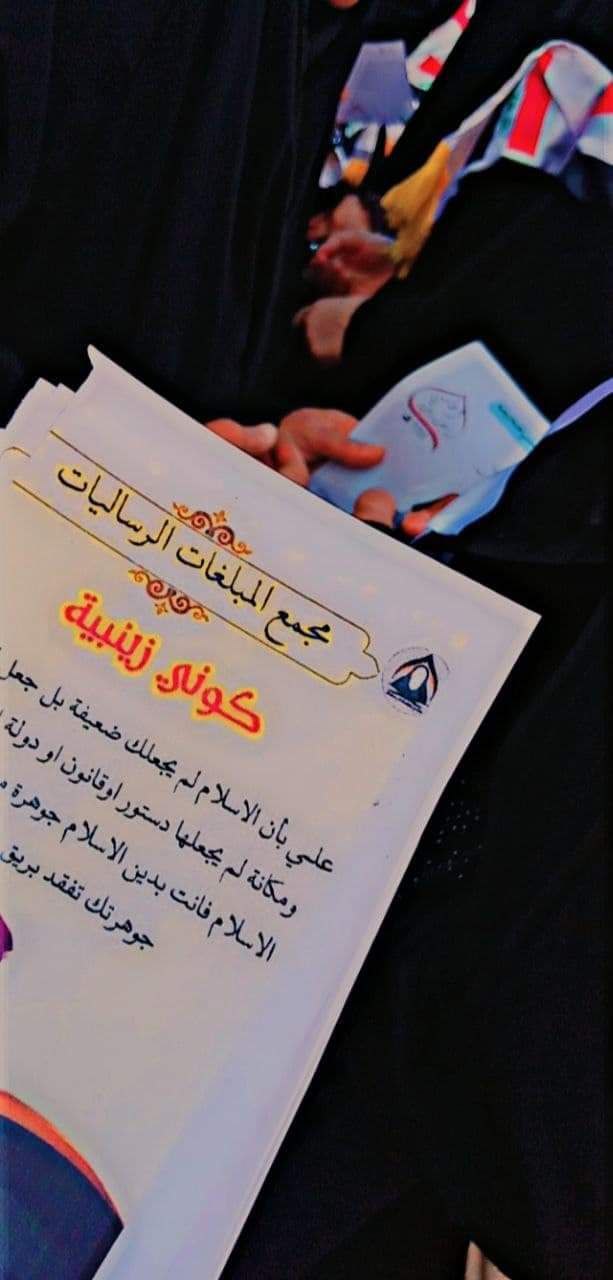 مجمع المبلغات الرساليات
كوني زينبية
علمي بأن الاسلام لم يجعلك ضعيفة بل جعل
ومكانة لم يجعلها دستور اوقانون او دولة
الاسلام فانت بدين الاسلام جوهرة
جوهرتك تفقد بريق